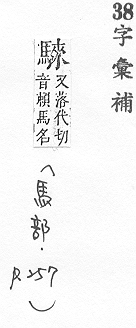 38字彙補
騋又落代切
音賴馬名
(馬部.
P.257)